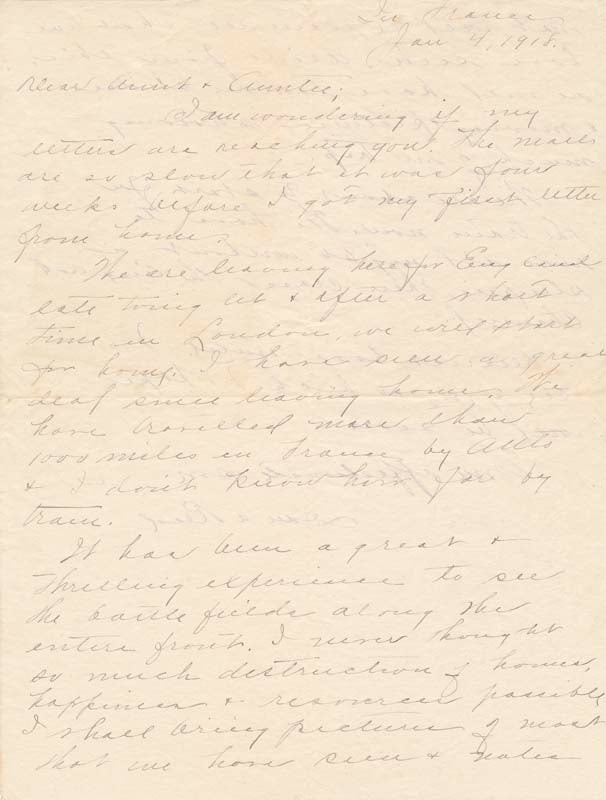 In France
Jan 4, 1918.
Dear Aunt & Auntie;
I am wondering if my
letters are reaching you. The mails
are so slow that it was four
weeks before I got my first letter
from home.
We are leaving here for England
late tonight & after a short
time in London, we will start
for home. I have seen a great
deal since leaving home. We
have travelled more than
1000 miles in France by Auto
& I don't know how far by
train.
It has been a great &
thrilling experience to see
the battle fields along the
entire front. I never thought
so much destruction of homes,
happiness & resources possible
I shall bring pictures of most
that we have seen & notes